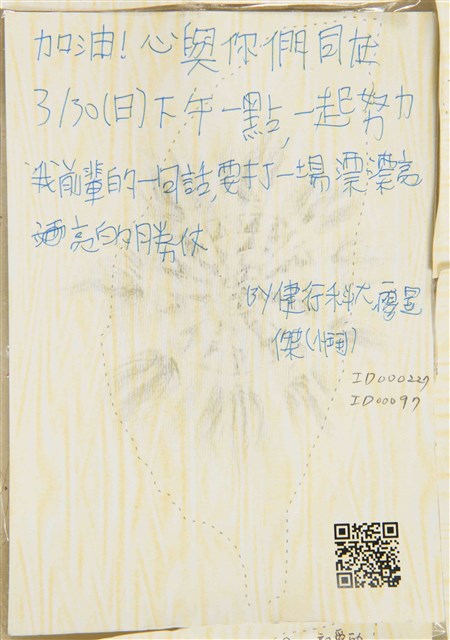 加油! 心與你們同在
3/30(日)下午一點,一起努力
我前輩的一句話,要打一場漂漂亮
亮的勝仗
BY健行科大
傑(小
ID000227
ID00097